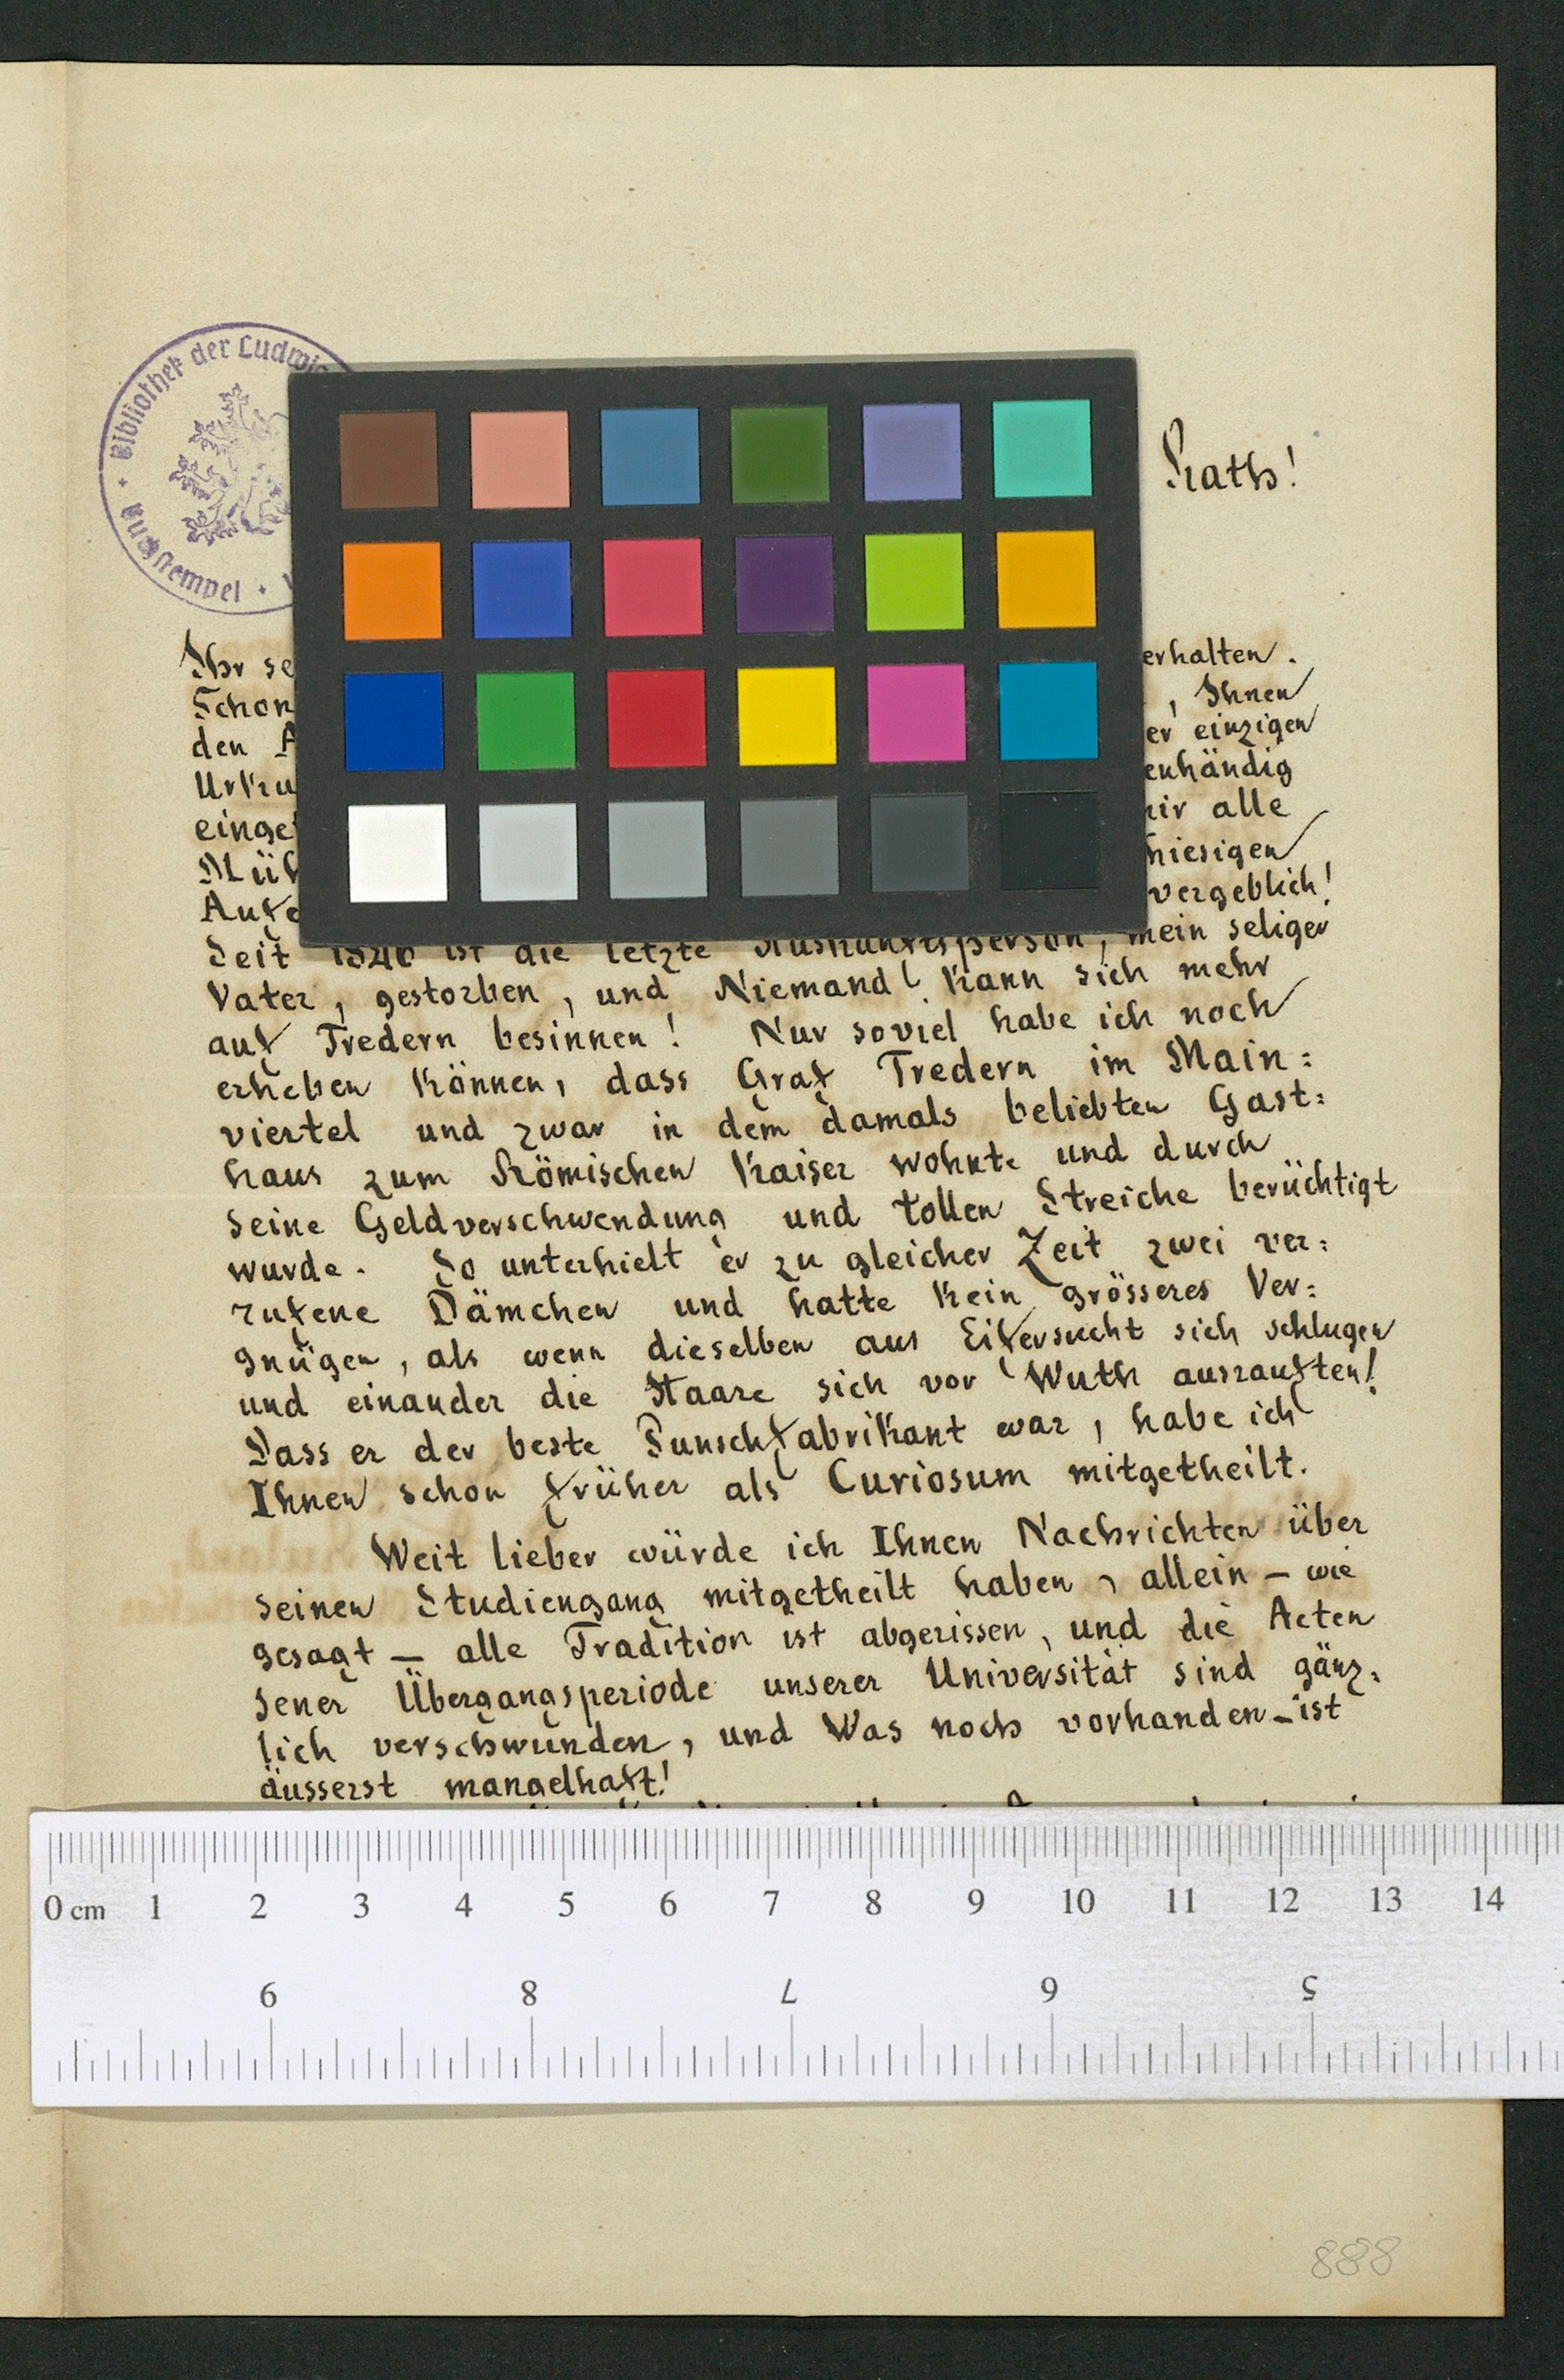 Bibliothek der Ludwi
Buchstempel
Rath!
Ihr se erhalten.
Schon , Ihnen
den A er einzigen
Urku enhändig
einge mir alle
Müh hiesigen
Aufe vergeblich!
Seit 1846 ist die letzte Auskunftsperson, mein seliger
Vater, gestorben, und Niemand kann sich mehr
auf Tredern besinnen! Nur soviel habe ich noch
erheben können, dass Graf Tredern im Main=
viertel und zwar in dem damals beliebten Gast=
haus zum Römischen Kaiser wohnte und durch
seine Geldverschwendung und tollen Streiche berüchtigt
wurde. So unterhielt er zu gleicher Zeit zwei ver=
rufene Dämchen und hatte kein grösseres Ver=
gnügen, als wenn dieselben aus Eifersucht sich schlugen
und einander die Haare sich vor Wuth ausrauften!
Dass er der beste Punschfabrikant war, habe ich
Ihnen schon früher als Curiosum mitgetheilt.
Weit lieber würde ich Ihnen Nachrichten über
seinen Studiengang mitgetheilt haben, allein – wie
gesagt – alle Tradition ist abgerissen, und die Acten
jener Übergangsperiode unserer Universität sind gänz=
lich verschwunden, und Was noch vorhanden – ist
äusserst mangelhaft!
0 cm 1 2 3 4 5 6 7 8 9 10 11 12 13 14
9 8 7 6 5
888